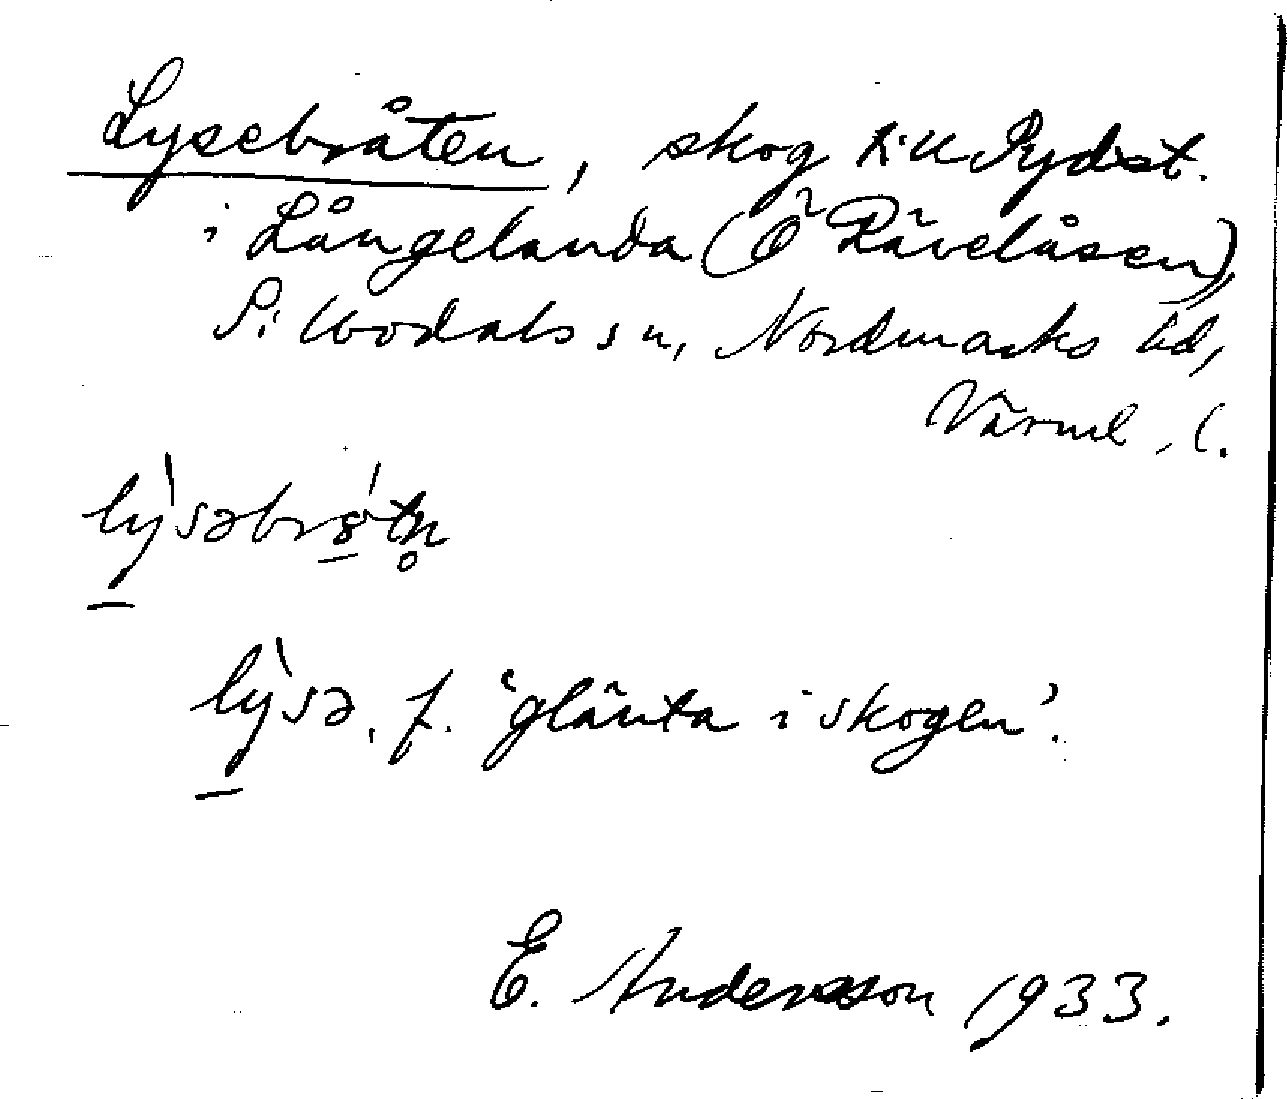 Lysebråten, skog till Rydst.
i Långelanda (Ö Rävelåsen),
Sillbodals sn, Nordmarks hd,
Värml. l.
lỳsəbrǻtn̥
lỳsə, f. 'glänta i skogen'.
E. Andersson 1933.